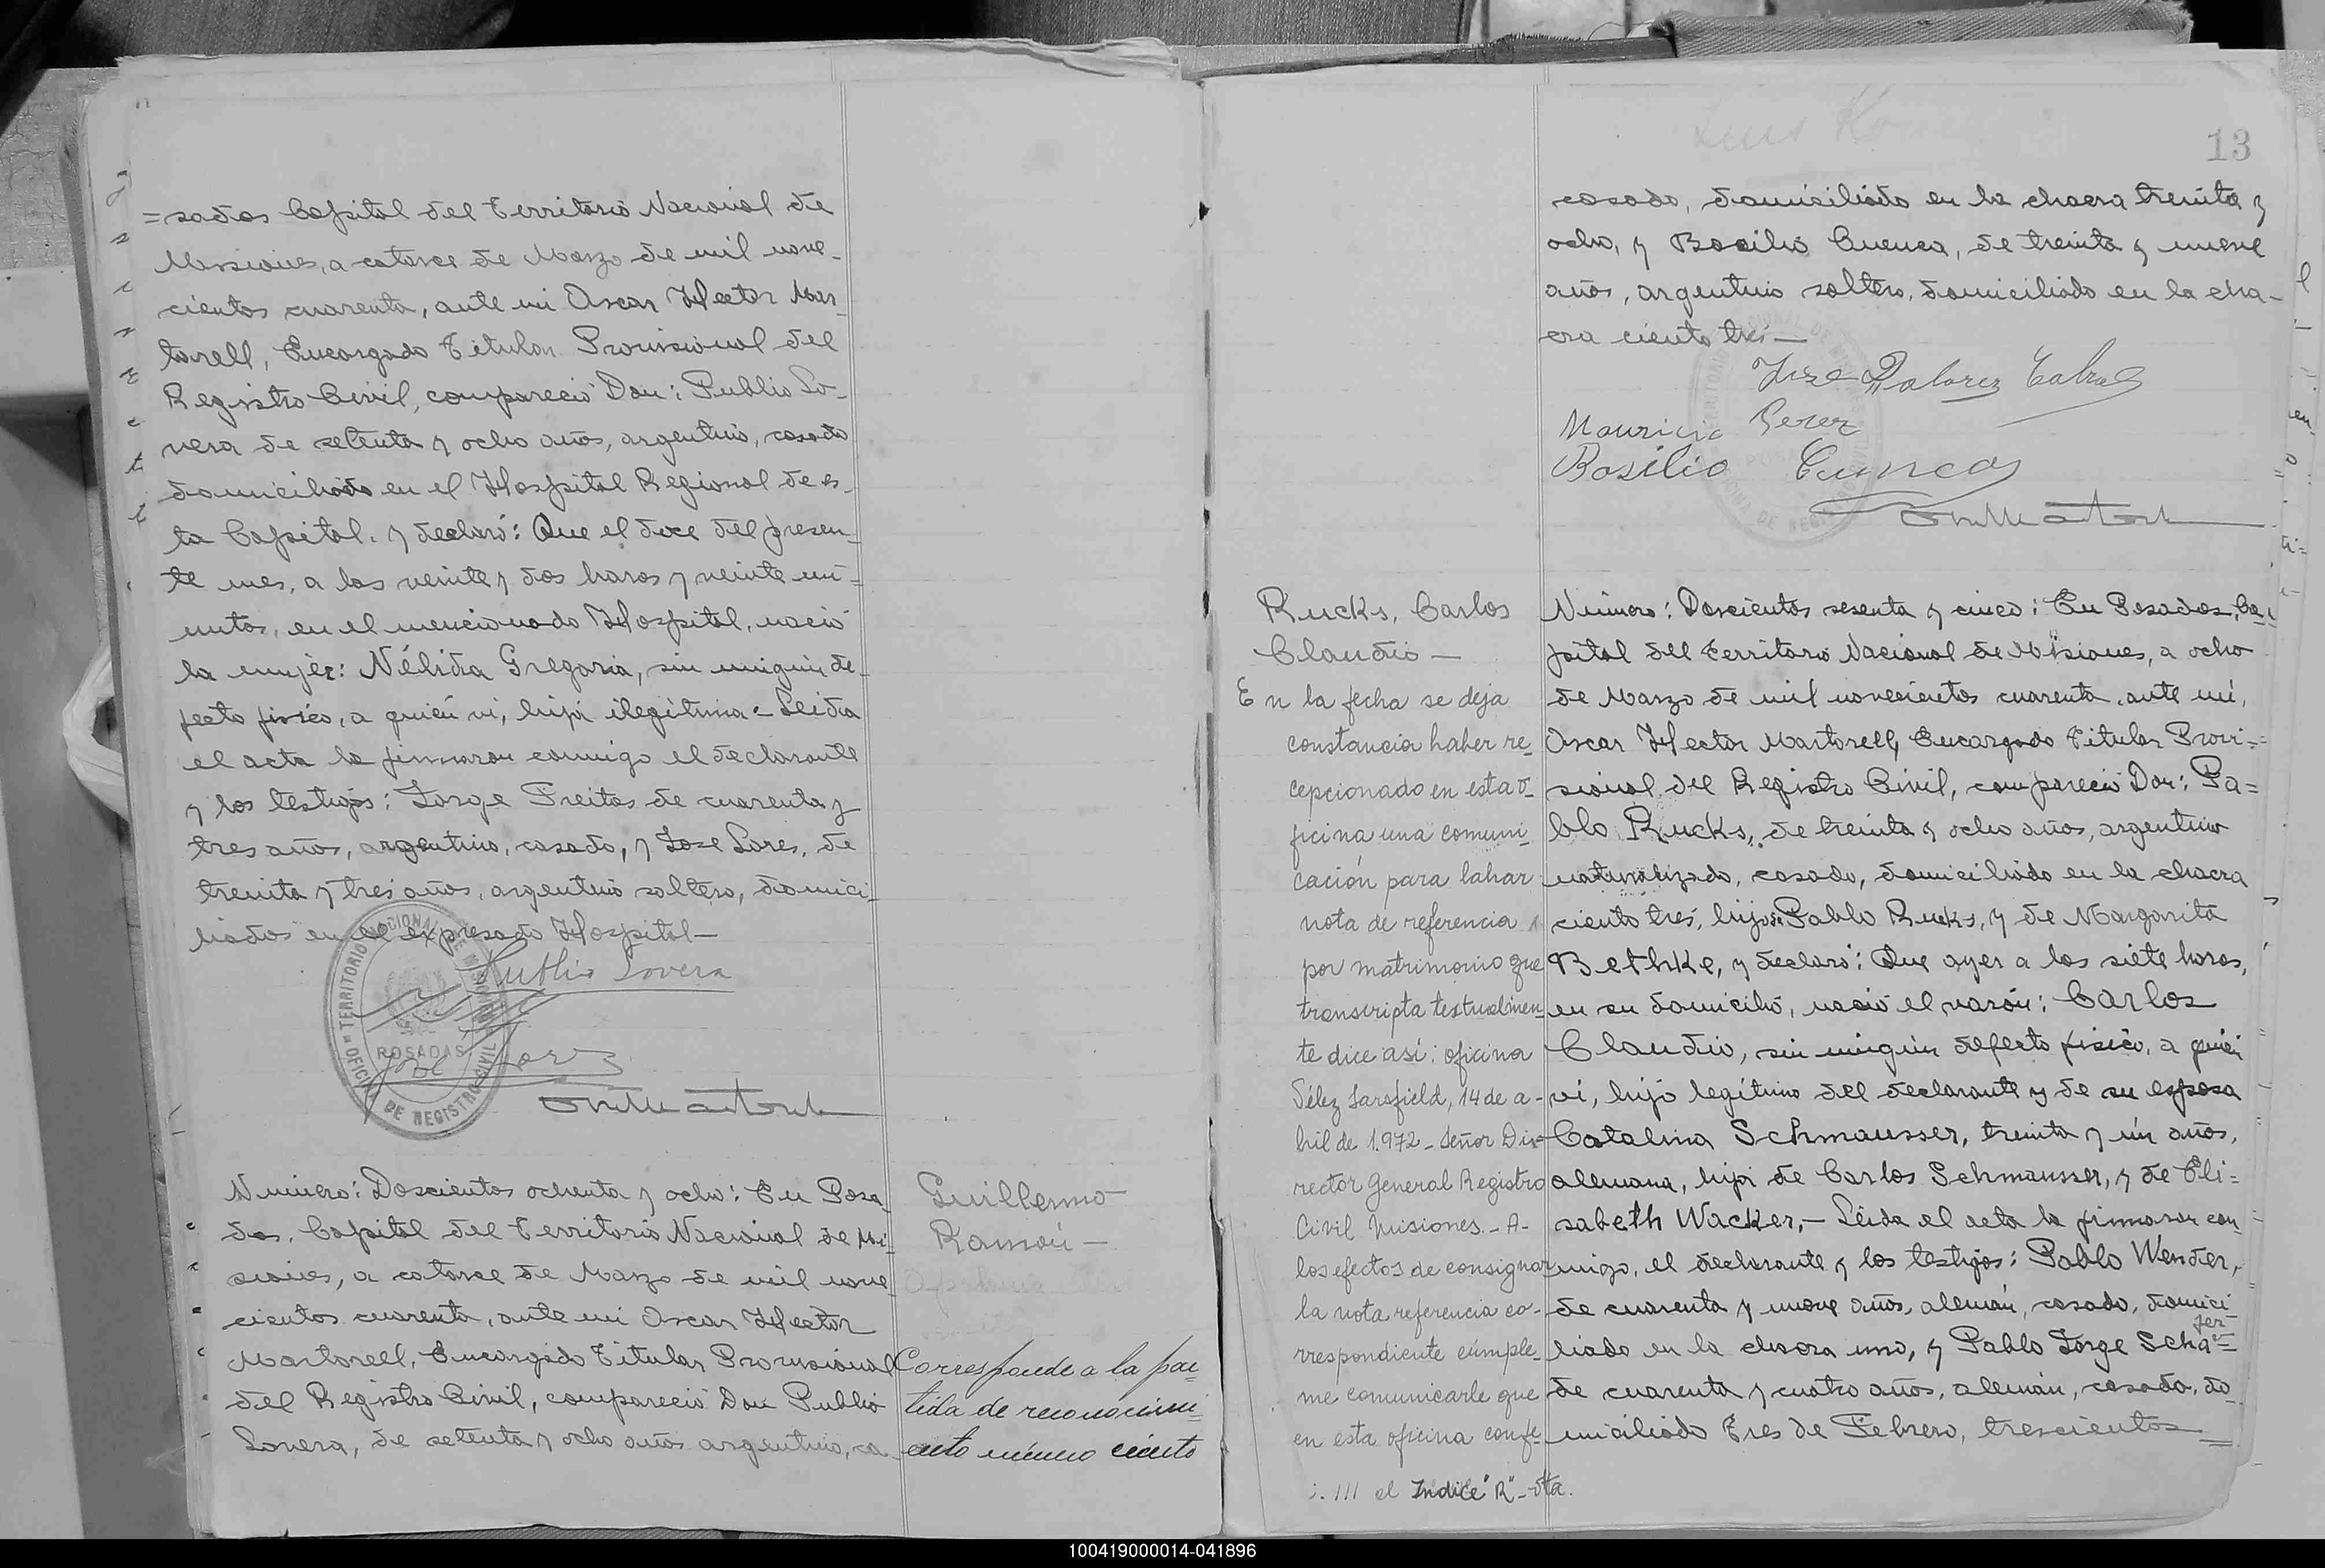 =sadas Capital del Territorio Nacional de
Misiones, a catorce de Marzo de mil nove-
cientos cuarenta, ante mi Oscar Hector Mar-
torell, Encargado Titular Provisional del
Registro Civil, compareció Don: Publio Lo-
vera de setenta y ocho años, argentino, casado
domiciliado en el Hospital Regional de es-
ta Capital. y declaró: Que el doce del presen-
te mes, a las veinte y dos horas y veinte mi-
nutos, en el mencionado Hospital, nació
la mujer: Nélida Gregoria, sin ningún de-
fecto físico, a quién vi, hija ilegitima- Leida
el acta la firmaron conmigo el declarante
y los testigos: Jorge Freitas de cuarenta y
tres años, argentino, casado, y Jose Lares, de
treinta y tres años, argentino soltero, domici-
liados en el expresado Hospital-
Publio Lovera
TERRITORIO NACIONAL DE MISIONES
POSADAS
OFICINA DE REGISTRO CIVIL
Número: Doscientos ochenta y ocho: En Posa-
das, Capital del Territorio Nacional de Mi-
siones, a catorce de Marzo de mil nove
cientos cuarenta, ante mi Oscar Hector
Martorell, Encargado Titular Provisional
del Registro Civil, compareció Don Publio
Lovera, de setenta y ocho años argentino, ca-
Guillermo
Ramón-
Corresponde a la par-
tida de reconocimi-
ento número ciento
13
casado, domiciliado en la chacra treinta y
ocho, y Basilio Cuenca, de treinta y nueve
años, argentino soltero, domiciliado en la cha-
cra ciento tres-
Jose Dalores Cabral
Mauricio Perez
Basilio Cuenca
Rucks, Carlos
Claudio-
En la fecha se deja
constancia haber re-
cepcionado en esta o-
ficina una comuni-
cación para labar
nota de referencia
por matrimonio que
transcripta textualmen-
te dice así: oficina
Sélez Sarsfield, 14 de a-
bril de 1.972- Señor Di-
rector General Registro
Civil Misiones.- A-
los efectos de consignar
la nota referencia co-
rrespondiente cúmple-
me comunicarle que
en esta oficina confe-
el Indice "R"-
Número: Doscientos sesenta y cinco: En Posadas, Ca-
pital del Territorio Nacional de Misiones, a ocho
de Marzo de mil novecientos cuarenta, ante mí,
Oscar Hector Martorell, Encargado Titular Provi-
sional del Registro Civil, compareció Don: Pa=
blo Rucks, de treinta y ocho años, argentino
naturalizado, casado, domiciliado en la chacra
ciento tres, hijo de Pablo Rucks, y de Margarita
Bethke, y declaró: Que ayer a las siete horas,
en su domicilio, nació el varón: Carlos
Claudio, sin ningún defecto físico, a quien
ví, hijo legítimo del declarante y de su esposa
Catalina Schmausser, treinta y ún años,
alemana, hija de Carlos Schmausser, y de Eli=
sabeth Wacker,- Leida el acta la firmaron con
migo, el declarante y los testigos: Pablo Wender,
de cuarenta y nueve años, alemán, casado, domici
liado en la chacra uno, y Pablo Jorge Schäfer=
de cuarenta y cuatro años, alemán, casado, do-
miciliado Tres de Febrero, trescientos
100419000014-041896